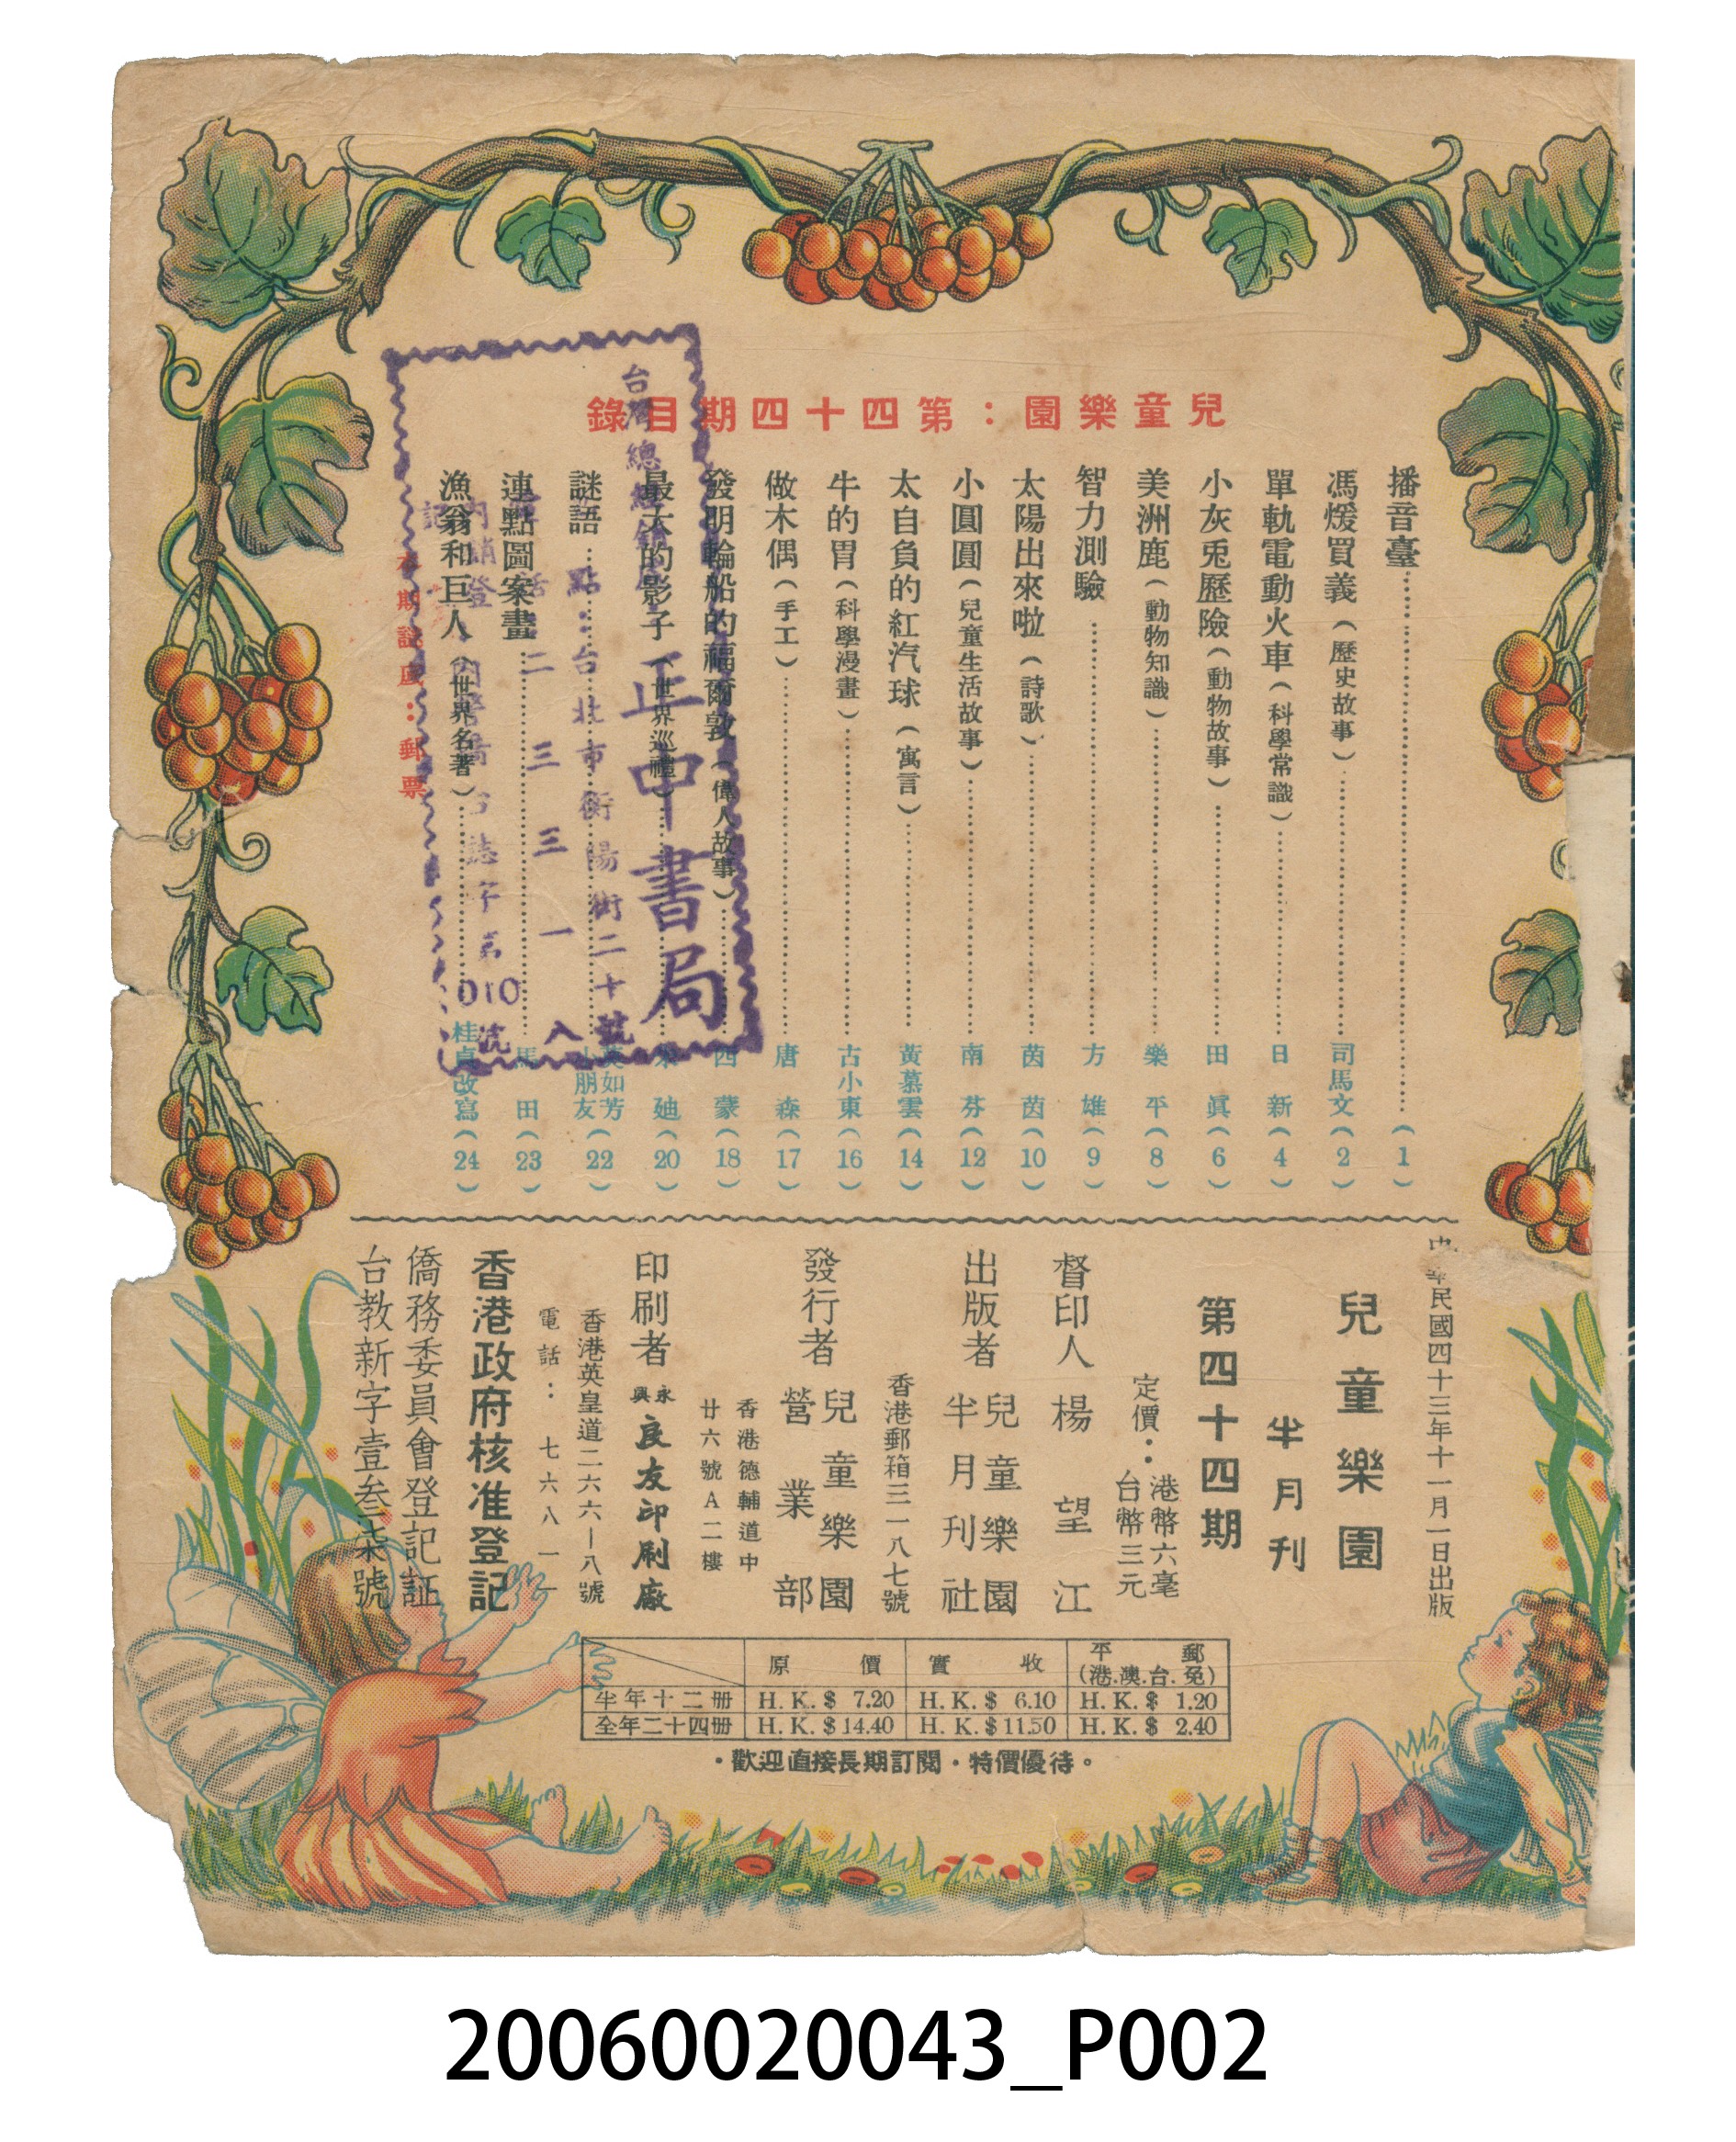 兒童樂園：第四十四期目錄
播音臺……(1)
馮煖買義(歷史故事)……司馬文(2)
單軌電動火車(科學常識)……日新(4)
小灰兎歷險(動物故事)……田眞(6)
美洲鹿(動物知識)……樂平(8)
智力測驗……方雄(9)
太陽出來啦(詩歌)……茵茵(10)
小圓圓(兒童生活故事)……南芬(12)
太自負的紅汽球(寓言)……黃慕雲(14)
牛的胃(科學漫畫)……古小東(16)
做木偶(手工)……唐森(17)
發明輪船的福爾敦(偉人故事)……西蒙(18)
最大的影子(世界巡禮)……廸(20)
謎語……英如芳 小朋友(22)
連點圖案畫……馬田(23)
漁翁和巨人(世界名著)……桂貞改寫(24)
本期謎底：郵票
台灣總經銷處
正中書局
點：台北市衡陽街二十號
電話二三三一八
內銷登記
內警僑台誌字第010號
中華民國四十三年十一月一日出版
兒童樂園
半月刊
第四十四期
定價：港幣六毫
台幣三元
督印人 楊望江
出版者 兒童樂園
半月刊社
香港郵箱三一八七號
發行者 兒童樂園
營業部
香港德輔道中
廿六號A二樓
印刷者 永興良友印刷廠
香港英皇道二六六—八號
電話：七六八一一
香港政府核准登記
僑務委員會登記証
台教新字壹叁柒號
原價 實收 平郵
(港.澳.台.免)
半年十二册 H.K.$ 7.20 H.K.$ 6.10 H.K.$ 1.20
全年二十四册 H.K.$14.40 H.K.$11.50 H.K.$ 2.40
·歡迎直接長期訂閱·特價優待。
20060020043_P002